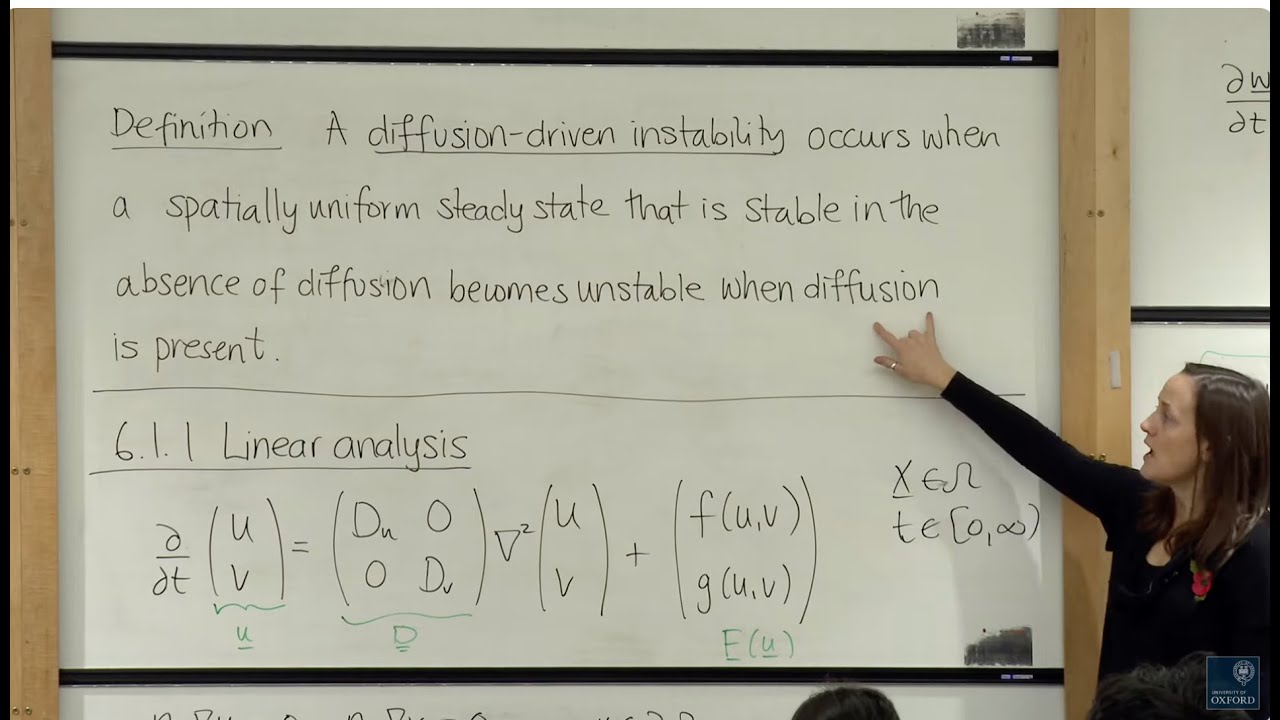 Definition A diffusion-driven instability occurs when
a spatially uniform steady state that is stable in the
absence of diffusion becomes unstable when diffusion
is present.
6.1.1 Linear analysis
∂/∂t (u v) = (Dᵤ 0 0 Dᵥ) ∇² (u v) + (f(u,v) g(u,v))
x ∈ Ω
t ∈ [0,∞)
u D F(u)
∂w
∂t
UNIVERSITY OF
OXFORD